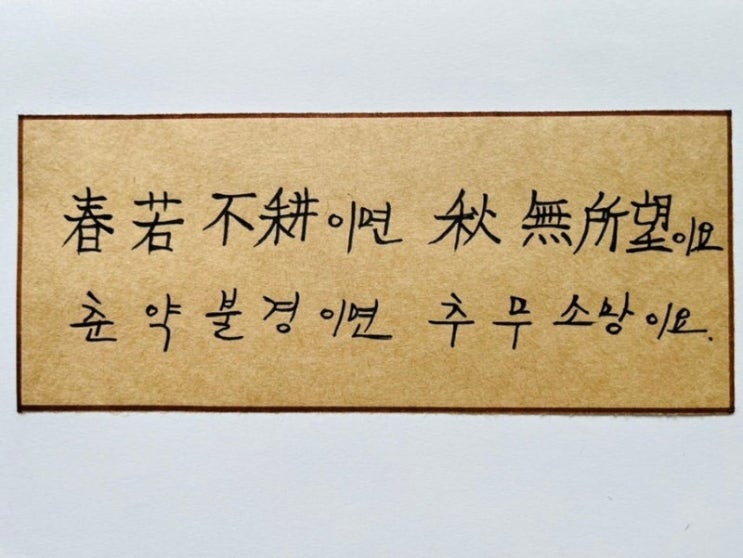 春若不耕이면 秋無所望이요
춘약불경이면 추무소망이요.